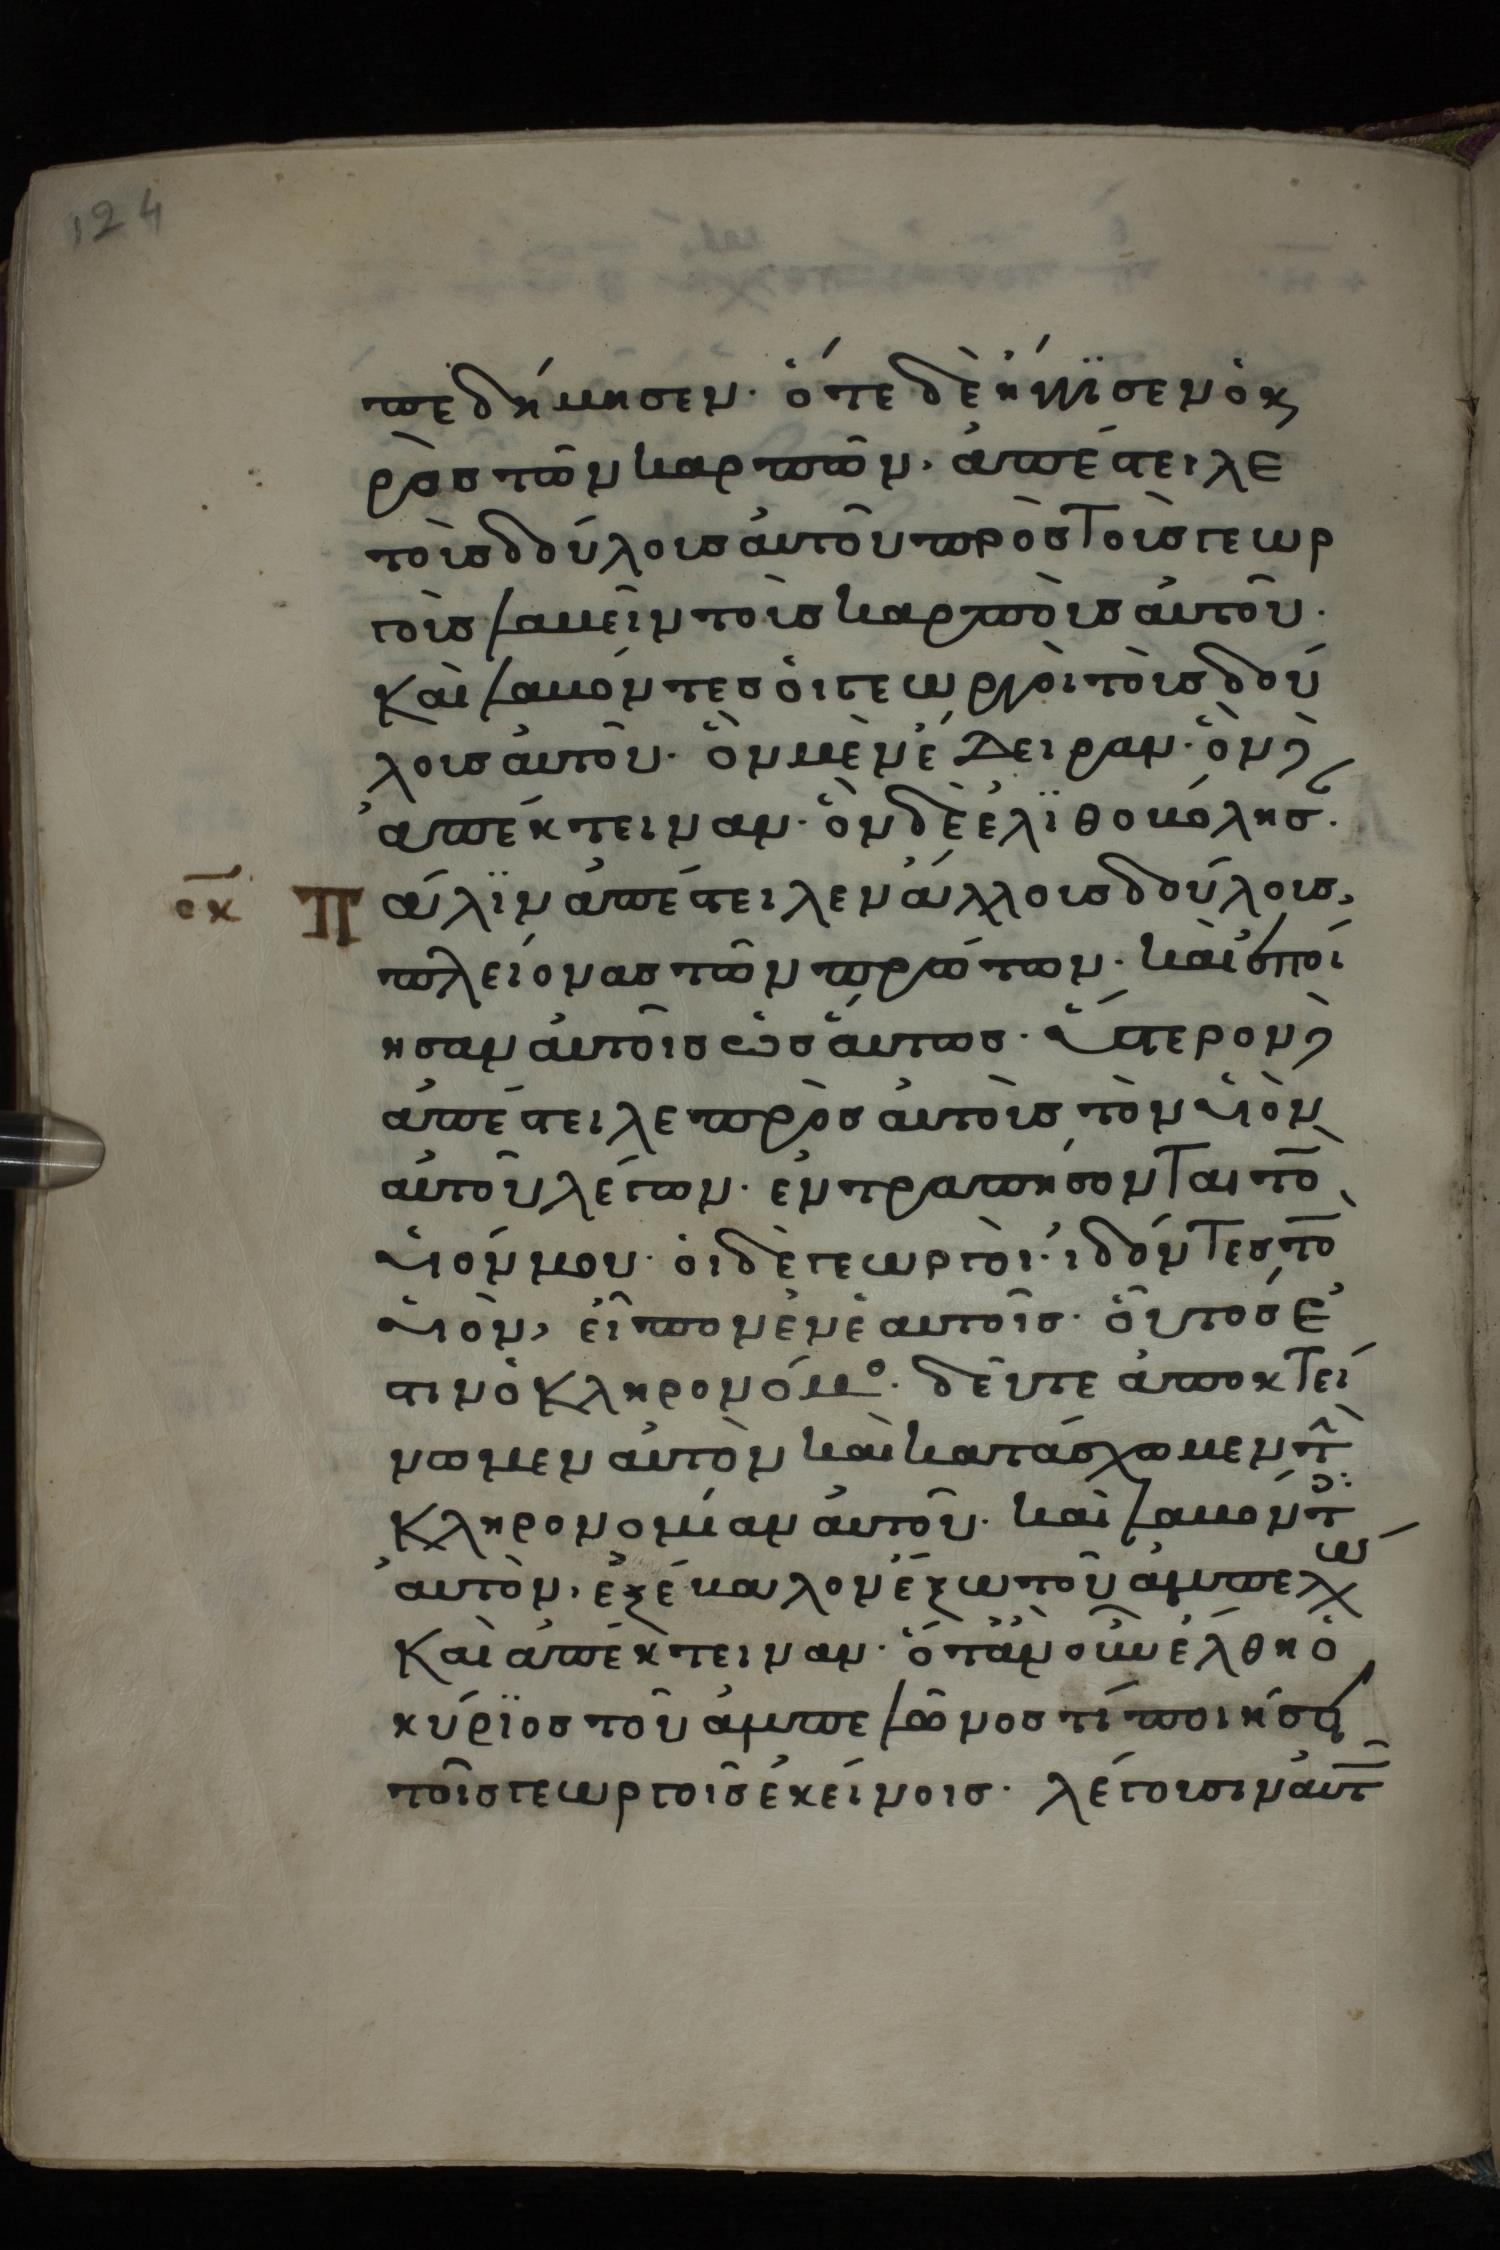 124
πεδήμησεν· ὅτε δὲ ἤγγϊσεν ὁ κ
ρὸσ τῶν καρπῶν, ἀπέστειλε
τοὺσ δούλουσ ἀυτοῦ πρὸσ τοὺσ γεωρ
γοὺσ λαβεῖν τοὺσ καρποὺσ ἀυτοῦ·
Καὶ λαβόντεσ ὁι γεωργὸι τοὺσ δού
λουσ ἀυτοῦ· ὃν μὲν ἔδειραν· ὃν δὲ
ἀπέκτειναν· ὃν δὲ ἐλϊθοβόλησ·
εκ Πάλϊν ἀπέστειλεν ἄλλουσ δούλουσ,
πλείονασ τῶν πρώτων· καὶ ἐποί
ησαν ἀυτοῖσ ὡσάυτωσ· ὕστερον δὲ
ἀπέστειλε πρὸσ ἀυτοὺσ τὸν ὑιὸν
ἀυτοῦ λέγων· ἐντραπήσονται το
ὑιόν μου· ὁι δὲ γεωργὸι· ἰδόντεσ το
ὑιὸν, εἶπον ἐν ἑαυτοῖσ· οὗτόσ ἐ
στιν ὁ κληρονόμο· δεῦτε ἀποκτεί
νωμεν ἀυτὸν καὶ κατάσχωμεν τὴ
κληρονομίαν ἀυτοῦ· καὶ λαβόντ
ἀυτὸν, ἐξέβαλον ἔξω τοῦ ἀμπελῶ
Καὶ ἀπέκτειναν· ὅτἂν οὖν ἔλθη ὁ
κύρϊοσ τοῦ ἀμπελῶνοσ τί ποιήσει
τοῖσ γεωργοῖσ ἐκείνοισ· λέγουσιν ἀυτ